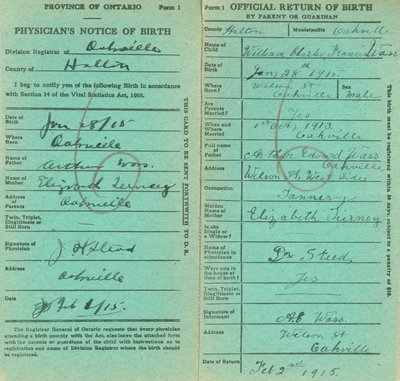 PROVINCE OF ONTARIO Form 1
PHYSICIAN'S NOTICE OF BIRTH
Division Registrar of Oakville
County of Halton
I beg to notify you of the following Birth in accordance
with Section 14 of the Vital Statistics Act, 1908.
Date of Birth Jan 28/15
Where Born Oakville
Name of Father Arthur Wass.
Name of Mother Tierney
Address of Parents Oakville
Twin, Triplet,
Illegitimate or
Still Born
Signature of Physician
Address Oakville
Date Feb 1/15.
The Registrar General of Ontario requests that every physician
attending a birth comply with the Act, also leave the attached form
with the parents or guardians of the child with instructions as to
registration and name of Division Registrar where the birth should
be registered.
THIS CARD TO BE SENT FORTHWITH TO D.R.
Form 1 OFFICIAL RETURN OF BIRTH
BY PARENT OR GUARDIAN
County Halton Municipality Oakville
Name of Child William Charles Francis Wass
Date of Birth Jan, 28th 1915.
Where Born? Wilson St Oakville Sex Male
Are Parents Married? Yes
When and Where Married 1st Oct, 1913. Oakville
Full name of Father Arthur Edward Wass
Address Wilson St West Side Oakville
Occupation Tannery
Maiden Name of Mother Elizabeth Tierney
Is she Single or a Widow?
Name of Physician in attendance Dr Steed
Were you in the house at time of birth? Yes
Twin, Triplet,
Illegitimate or
Still Born
Signature of Informant AE Wass.
Address Wilson St Oakville
Date of Return Feb 2nd 1915.
This birth must be registered within 30 days, subject to a penalty of $10.